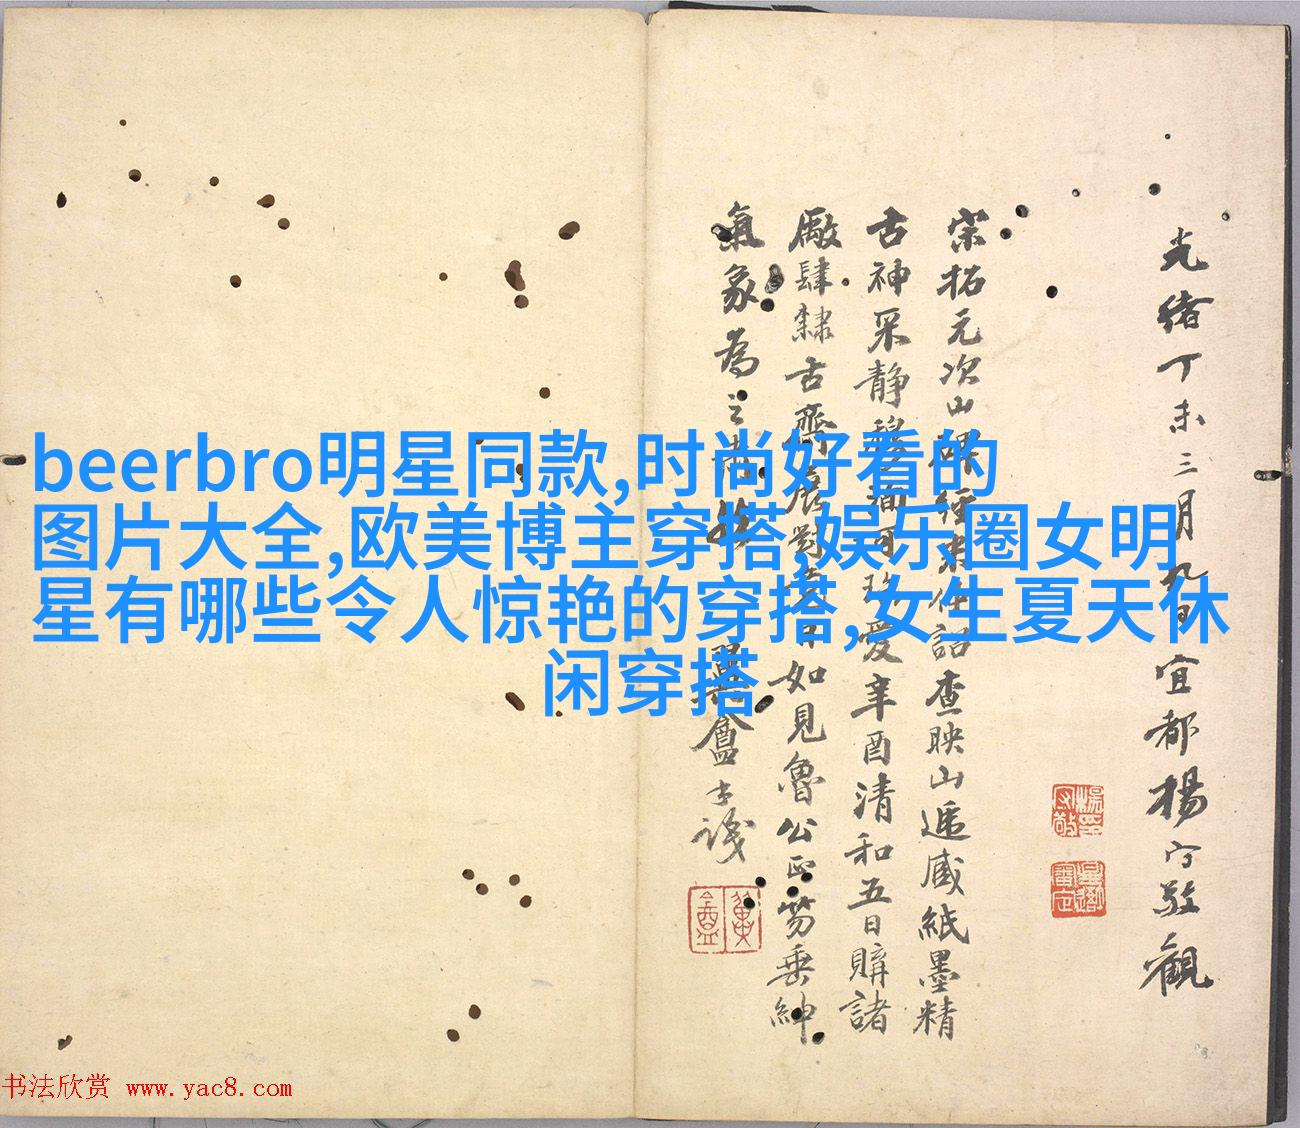 beerbro明星同款,时尚好看的
图片大全,欧美博主穿搭,娱乐圈女明
星有哪些令人惊艳的穿搭,女生夏天休
闲穿搭
光绪丁未三月九日宜都楊守敬觀
宗拓元次山碑經未仕詔查映山遞感紙墨精
古神采静穆洵可珍愛辛酉清和五日購諸
厰肆隸古齋展對古如見魯公正笏垂紳
氣象為之
盦士識
书法欣赏 www.yac8.com